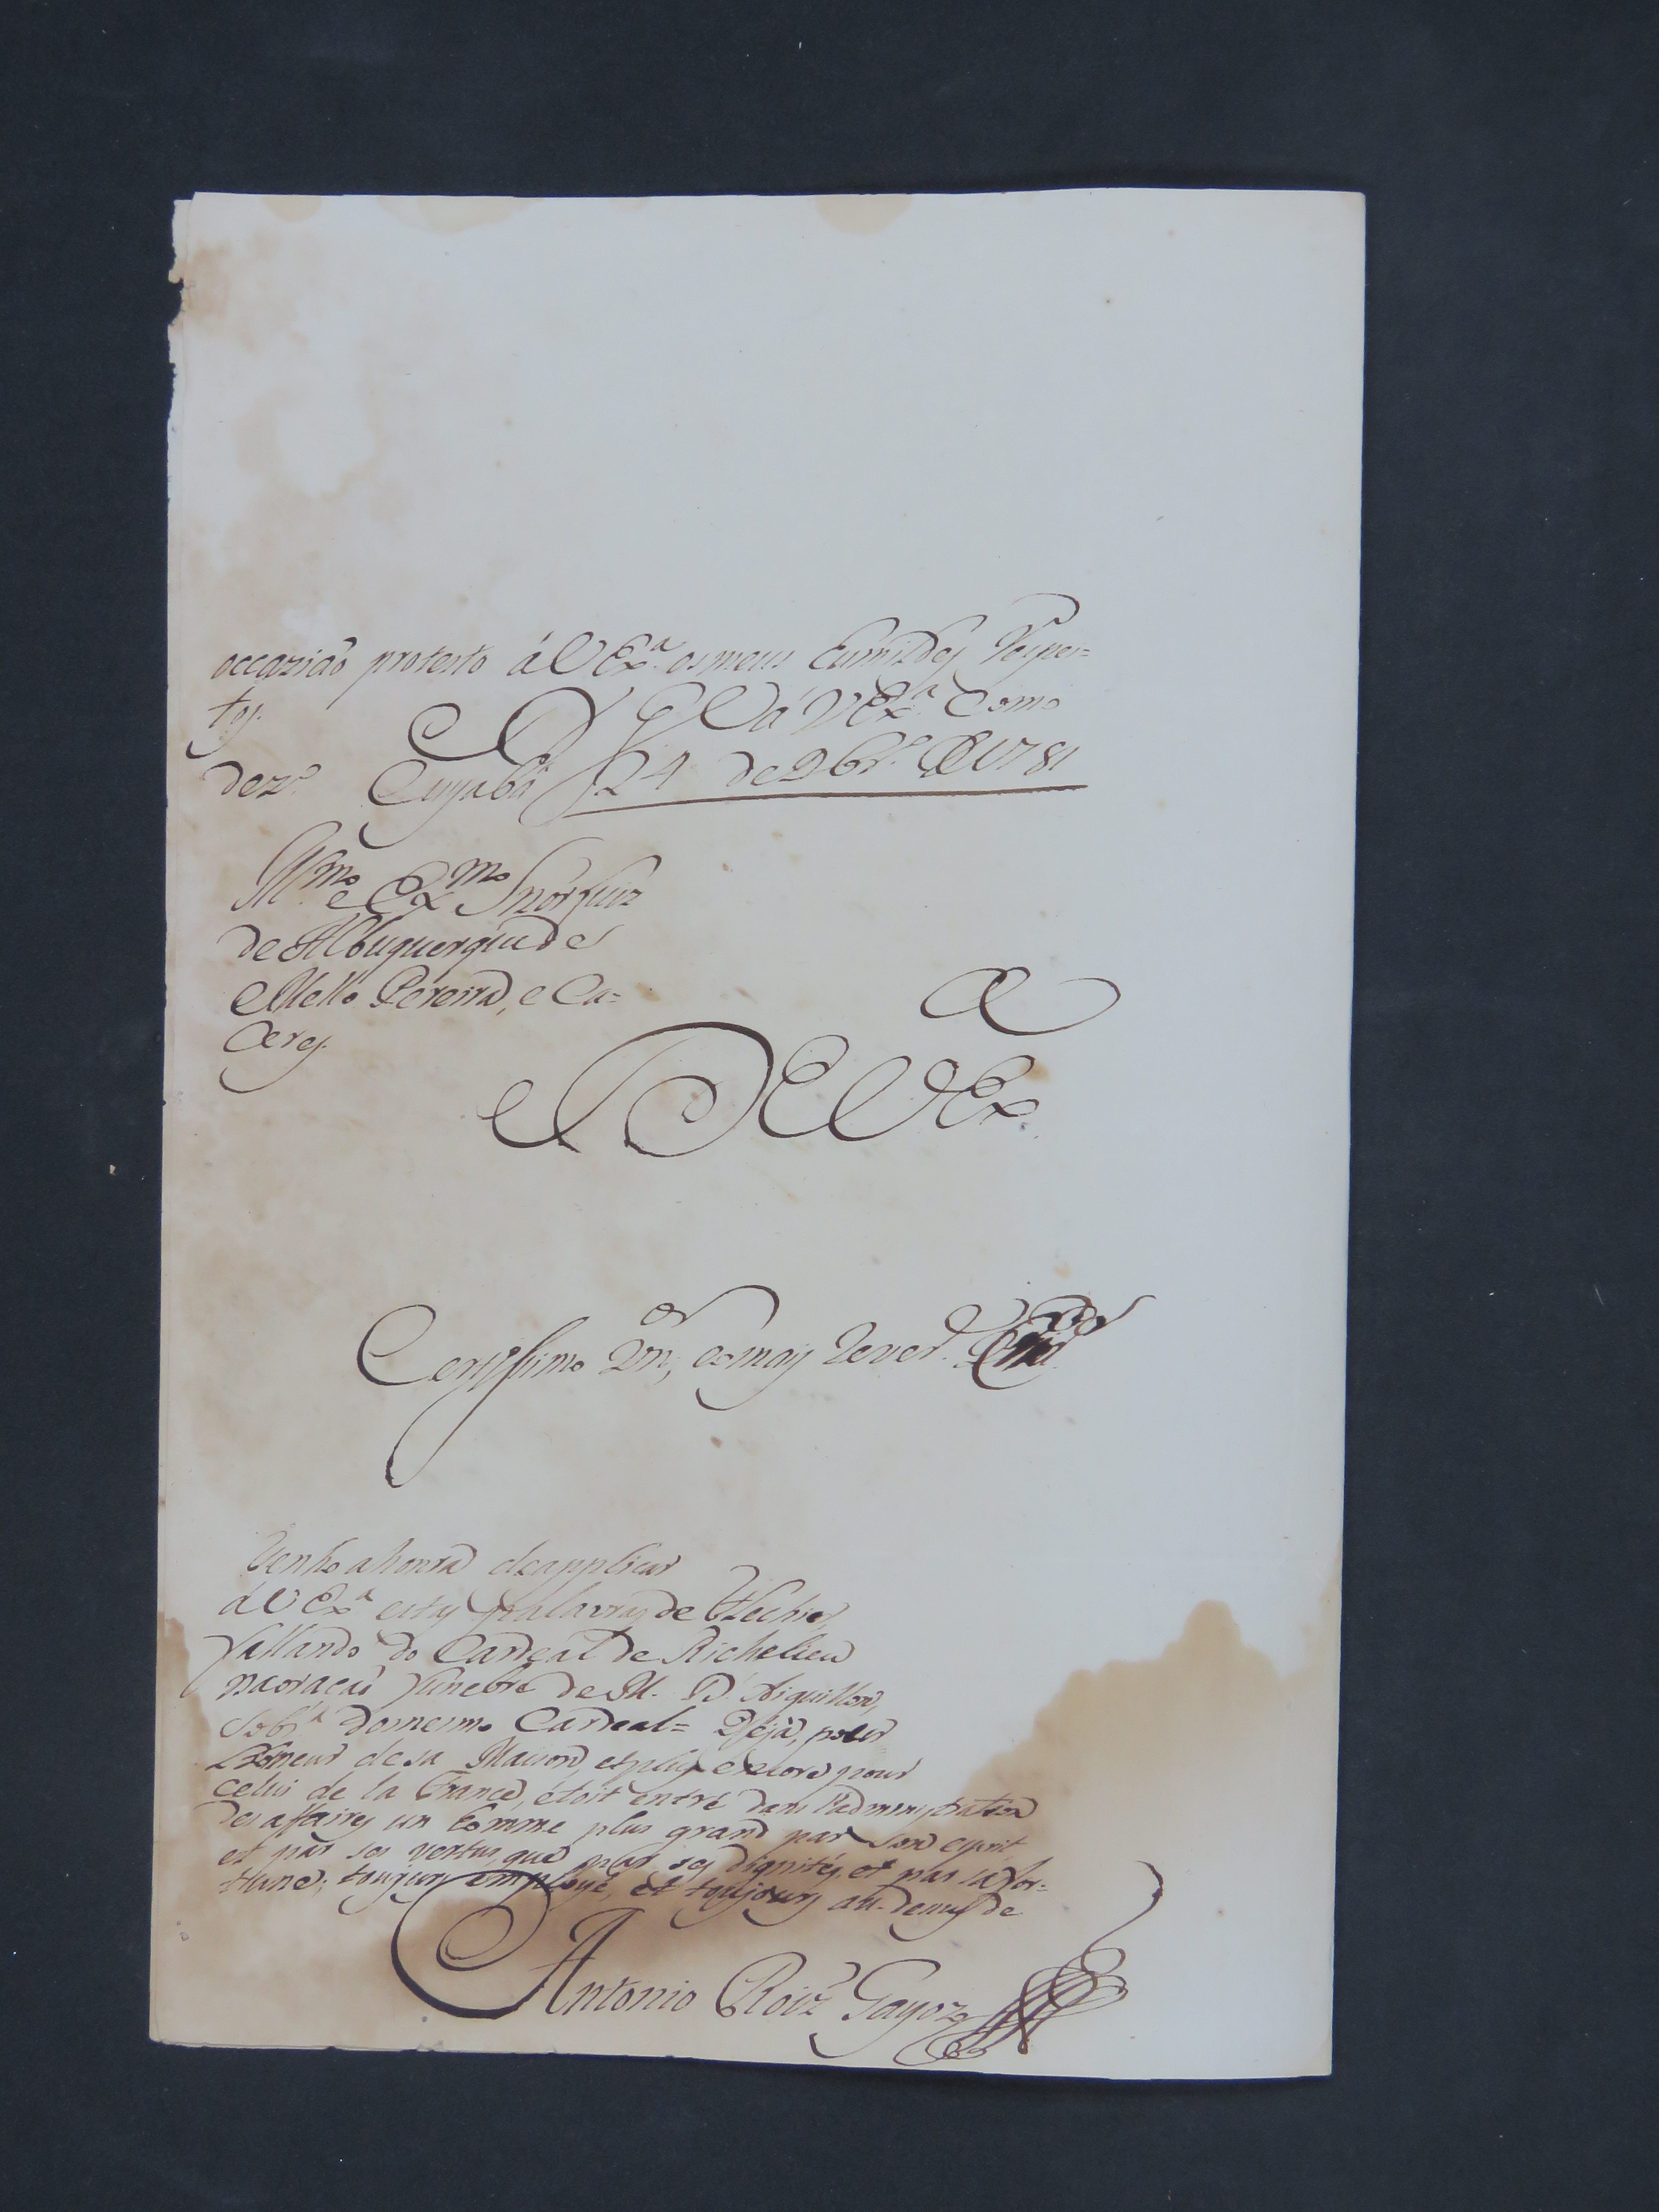 occazião protesto á V Ex.ª os meus humildes respei=
tos. D G.e a V Ex.ª Como
dez.º Cuyabá 24 de 9br.º de 1781
Ill.mo e Ex.mo Snõr Luiz
de Albuquerque de
Mello Pereira, e Ca=
ceres.
De V Ex.ª
Certissimo Vn.or, e o mais rever.e Cri.do
Tenho a honra de applicar
á V Ex.ª estas palavras de Flechier
fallando do Cardeal de Richelieu
na oraçaõ funebre de M. D'Aiguillon,
sobr.ª do mesmo Cardeal= Déjà, pour
l'honeur de sa Maison, et plus encore pour
celui de la France, étoit entré dans l'administration
des affaires un homme plus grand par son esprit,
et par ses vertus, que par ses dignités, et par sa for=
tune; toujours employé, et toujours au-dessus de
Antonio Roiz' Gayozo